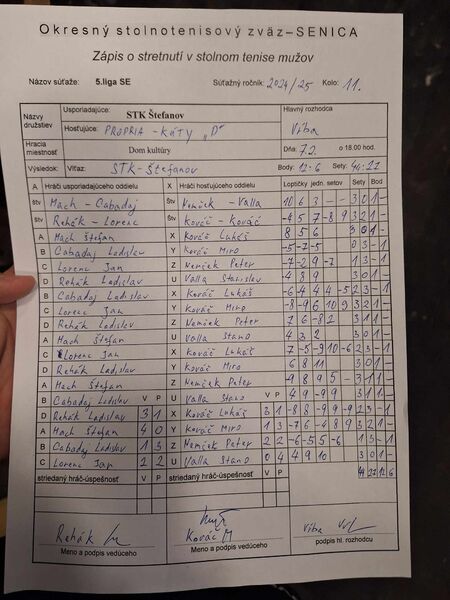 Okresný stolnotenisový zväz–SENICA
Zápis o stretnutí v stolnom tenise mužov
Názov súťaže: 5.liga SE Súťažný ročník: 2024/25 Kolo: 11.
Názvy družstiev Usporiadajúce: STK Štefanov Hlavný rozhodca
Hosťujúce: PROPRIA - KÚTY „D" Vrba
Hracia miestnosť Dom kultúry Dňa: 7.2. o 18.00 hod.
Výsledok: Víťaz: STK-Štefanov Body: 12-6 Sety: 44:27
A Hráči usporiadajúceho oddielu X Hráči hosťujúceho oddielu Loptičky jedn. setov Sety Bod
štv Mach - Cabadaj Štv Nemček - Valla 10 6 3 - - 3 0 1 -
štv Rehák - Lorenc Štv Kováč - Kováč -4 5 7 -8 9 3 2 1 -
A Mach Štefan X Kováč Lukáš 8 5 6 3 0 1 -
B Cabadaj Ladislav Y Kováč Miro -5 -7 -5 0 3 - 1
C Lorenc Jan Z Nemček Peter -7 -2 9 -7 1 3 - 1
D Rehák Ladislav U Valla Stanislav -4 3 9
B Cabadaj Ladislav X Kováč Lukáš -6 4 4 4 -5 2 3 - 1
C Lorenc Jan Y Kováč Miro -8 -9 6 10 9 3 2 1 -
D Rehák Ladislav Z Nemček Peter 7 6 -8 2 3 1 1 -
A Mach Štefan U Valla Stano 4 3 2 3 0 1 -
C Lorenc Jan X Kováč Lukáš 7 -5 -9 10 -6 2 3 - 1
D Rehák Ladislav Y Kováč Miro 6 8 11 3 0 1 -
A Mach Štefan Z Nemček Peter -9 8 9 5 - 3 1 1 -
B Cabadaj Ladislav V P U Valla Stano V P 4 9 -9 9 3 1 1 -
D Rehák Ladislav 3 1 X Kováč Lukáš 3 1 -8 8 -9 9 -9 2 3 - 1
A Mach Štefan 4 0 Y Kováč Miro 1 3 -7 6 -4 8 9 3 2 1 -
B Cabadaj Ladislav 1 3 Z Nemček Peter 2 2 -6 -5 5 -6 1 3 - 1
C Lorenc Jan 2 2 U Valla Stano 0 4 4 9 10 3 0 1 -
striedaný hráč-úspešnosť V P striedaný hráč-úspešnosť V P 44 27 12 6
Rehák Kováč M Vrba
Meno a podpis vedúceho Meno a podpis vedúceho podpis hl. rozhodcu